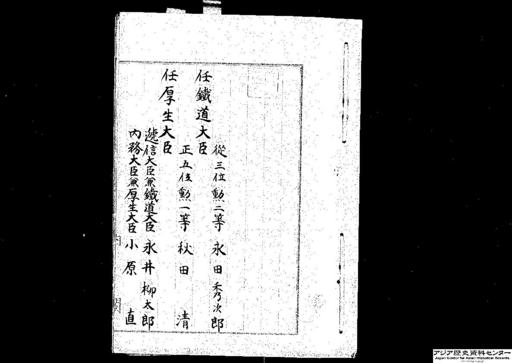 任鐵道大臣
從三位勲二等 永田秀次郎
任厚生大臣
正五位勲一等 秋田 清
遞信大臣兼鐵道大臣 永井柳太郎
内務大臣兼厚生大臣 小原 直
内閣
アジア歴史資料センター
Japan Center for Asian Historical Records